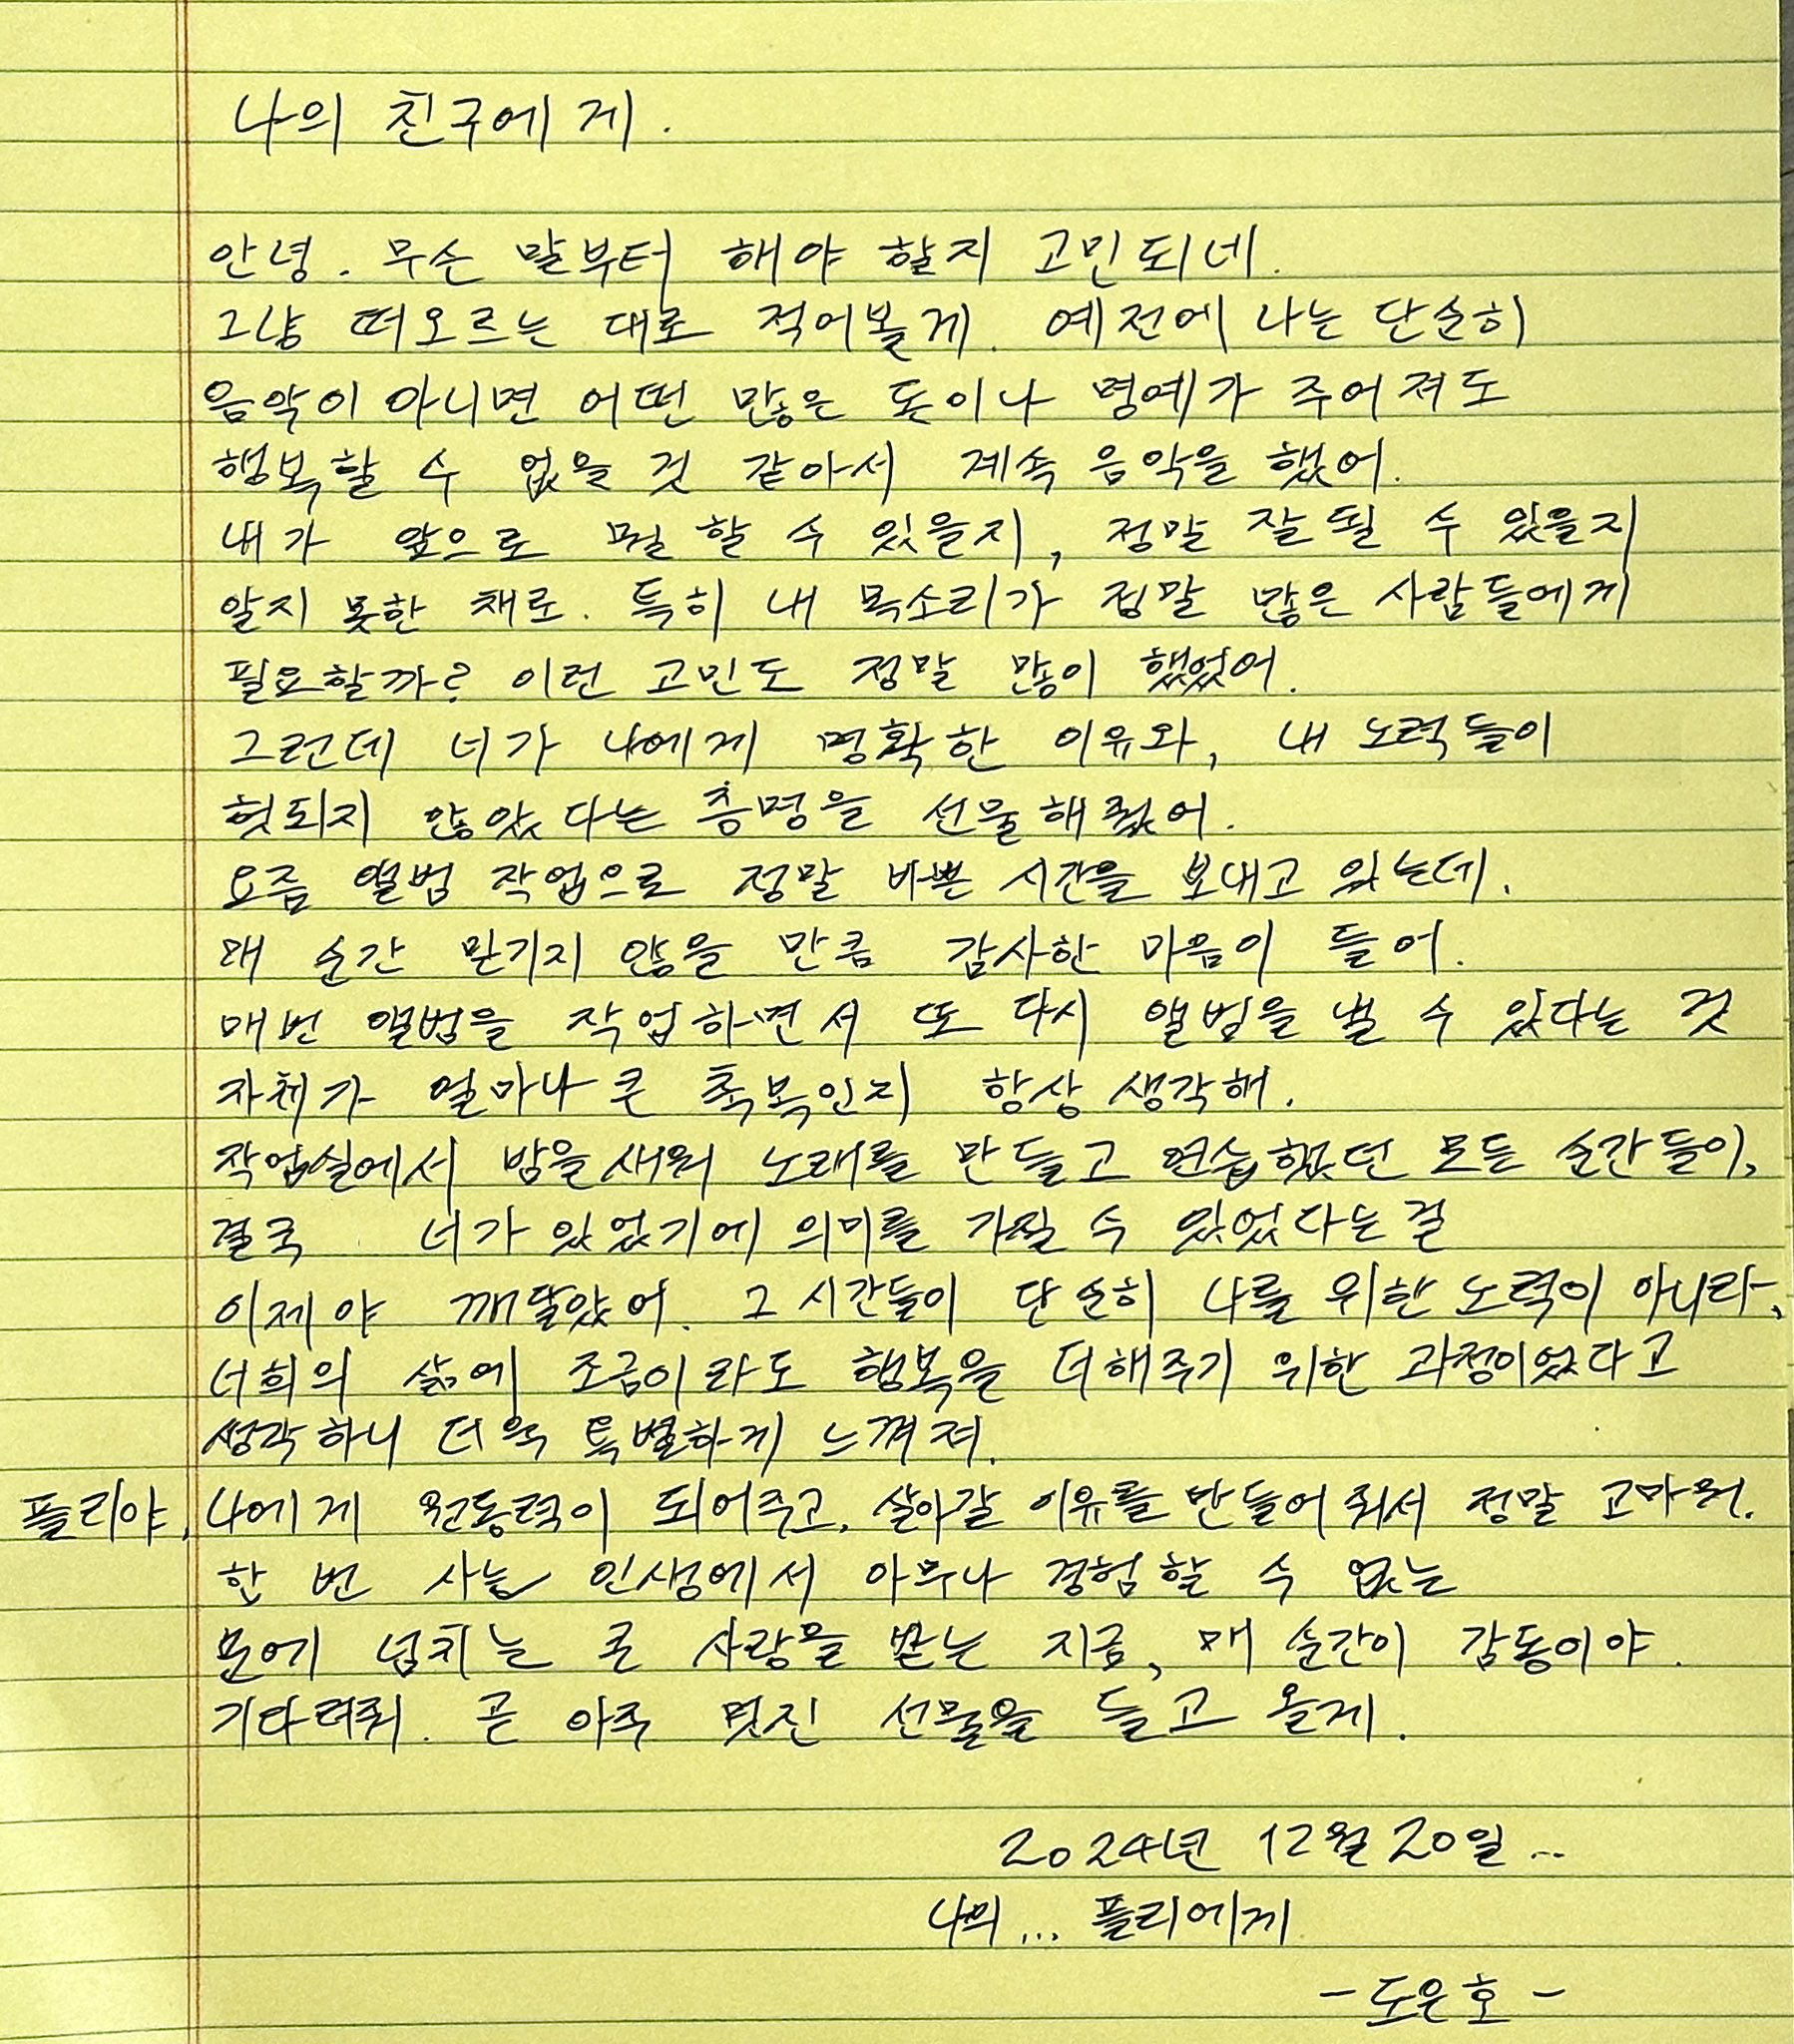 나의 친구에게.
안녕. 무슨 말부터 해야 할지 고민되네.
그냥 떠오르는 대로 적어볼게. 예전에 나는 단순히
음악이 아니면 어떤 많은 돈이나 명예가 주어져도
행복할 수 없을 것 같아서 계속 음악을 했어.
내가 앞으로 뭘 할 수 있을지, 정말 잘 될 수 있을지
알지 못한 채로. 특히 내 목소리가 정말 많은 사람들에게
필요할까? 이런 고민도 정말 많이 했었어.
그런데 너가 나에게 명확한 이유와, 내 노력들이
헛되지 않았다는 증명을 선물해줬어.
요즘 앨범 작업으로 정말 바쁜 시간을 보내고 있는데,
매 순간 믿기지 않을 만큼 감사한 마음이 들어.
매번 앨범을 작업하면서 또 다시 앨범을 낼 수 있다는 것
자체가 얼마나 큰 축복인지 항상 생각해.
작업실에서 밤을 새워 노래를 만들고 연습했던 모든 순간들이,
결국 너가 있었기에 의미를 가질 수 있었다는 걸
이제야 깨달았어. 그 시간들이 단순히 나를 위한 노력이 아니라,
너희의 삶에 조금이라도 행복을 더해주기 위한 과정이었다고
생각하니 더욱 특별하게 느껴져.
플리야, 나에게 원동력이 되어주고, 살아갈 이유를 만들어 줘서 정말 고마워.
한 번 사는 인생에서 아무나 경험할 수 없는
분에 넘치는 큰 사랑을 받는 지금, 매 순간이 감동이야.
기다려줘. 곧 아주 멋진 선물을 들고 올게.
2024년 12월 20일..
나의... 플리에게
-도은호-